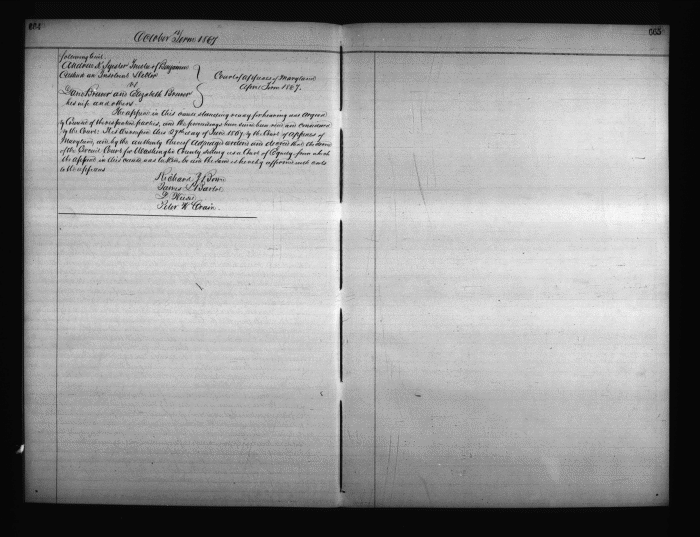 664
October Term 1867
665
following to wit:
Andrew K Syester Trustee of Benjamin
an Insolvent Debtor
vs
Brewer and Elizabeth Brewer
his wife and others
Court of Appeals of Maryland
April Term 1867.
The appeal in this cause standing ready for hearing was argued
by Counsel of the respective parties, and the proceedings have since been read and considered
by the Court. It is thereupon this 27th day of June 1867, by the Court of Appeals of
Maryland, and by the authority thereof Adjudged ordered and decreed that the
of the Circuit Court for Washington County sitting as a Court of Equity from which
the appeal in this cause was taken be and the same is hereby affirmed with costs
to the appellees
Richard J Bowie
James L Bartol
Peter W Crain